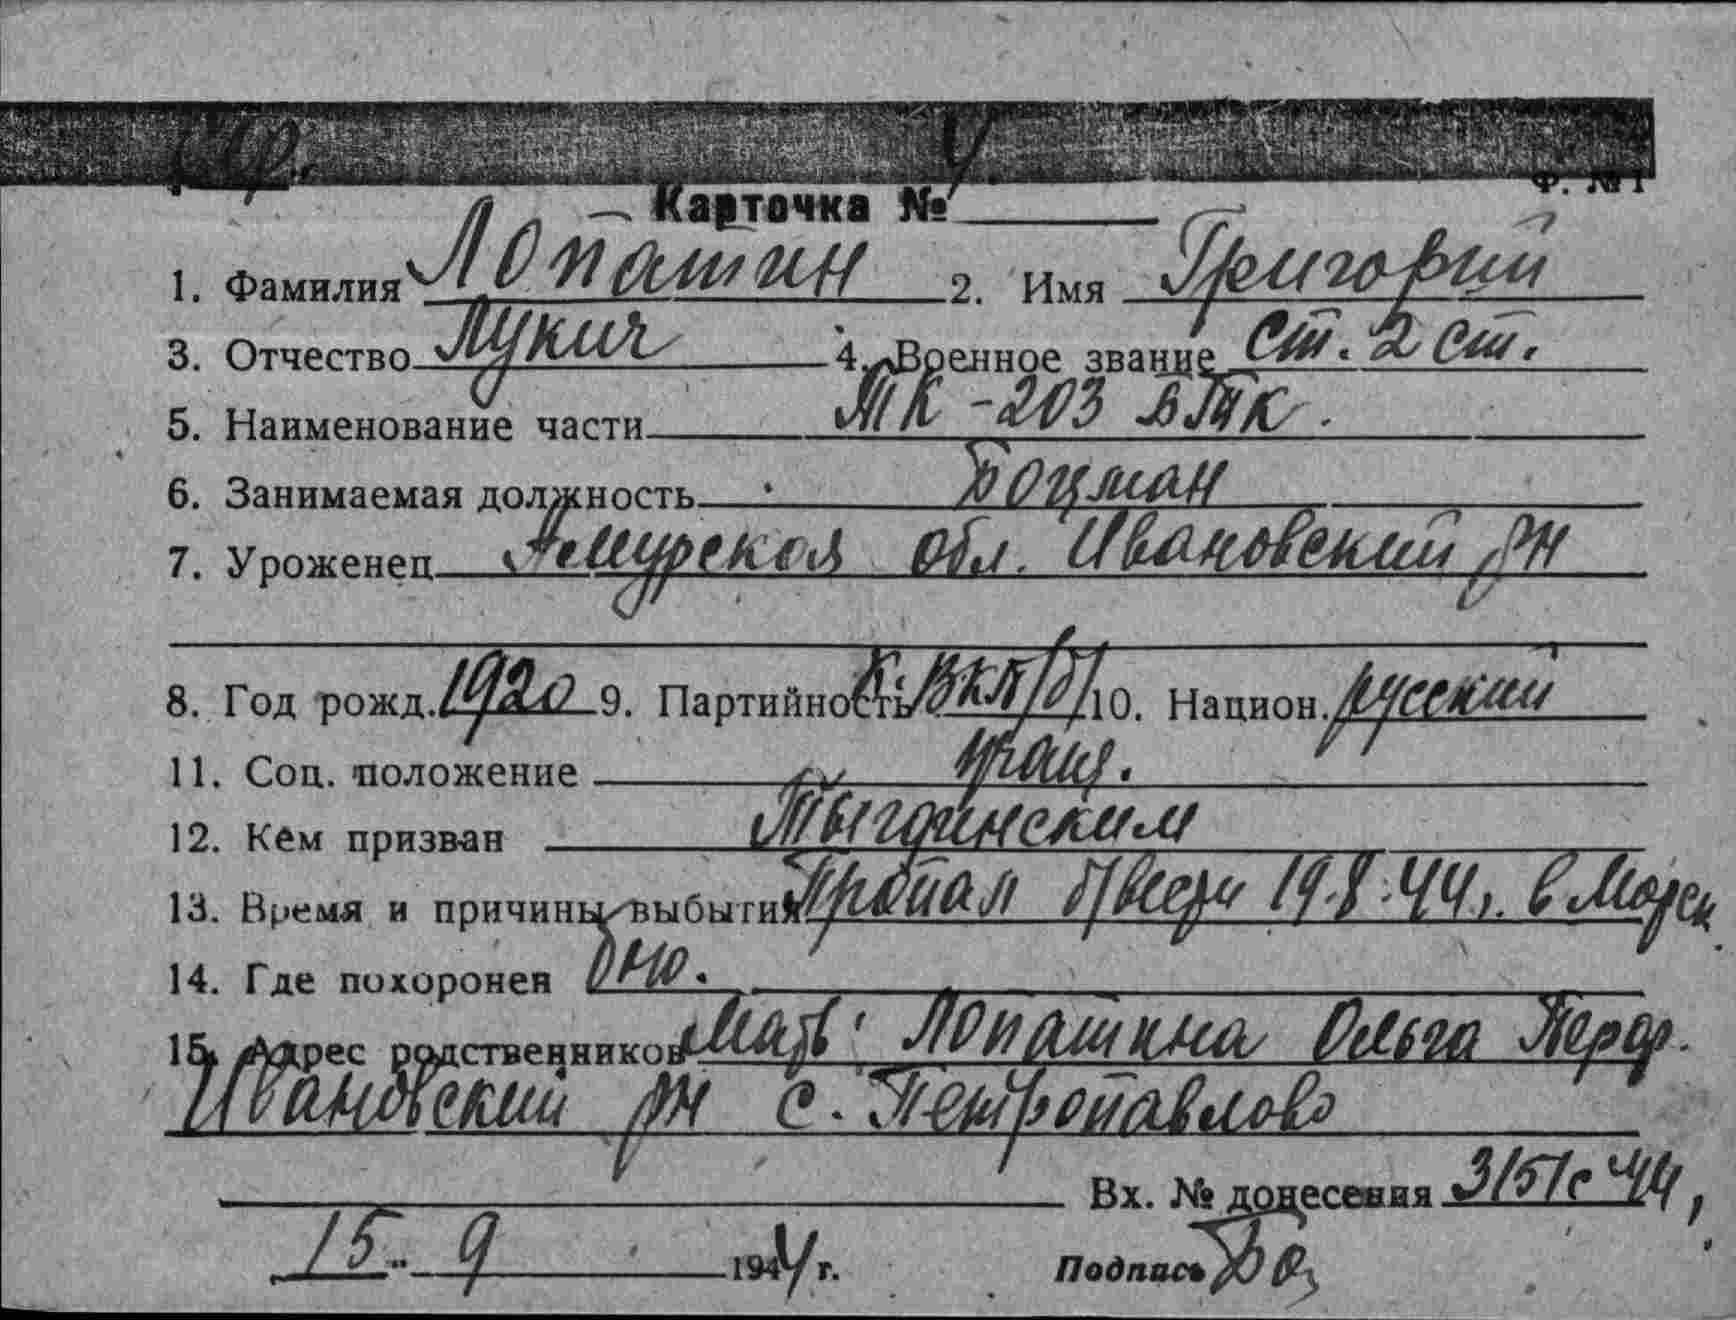 Ф. №1
Карточка №
1. Фамилия Лопатин 2. Имя Григорий
3. Отчество Лукич 4. Военное звание Ст. 2 ст.
5. Наименование части ТК-203 ВТК.
6. Занимаемая должность Боцман
7. Уроженец Амурской обл. Ивановский рн
8. Год рожд. 1920 9. Партийность К. ВКП/б/ 10. Национ. русский
11. Соц. положение
12. Кем призван Тыгдинским
13. Время и причины выбытия Пропал 19.8.44г. в
14. Где похоронен
15. Адрес родственников Мать: Лопатина Ольга
Ивановский рн с. Петропавлово
Вх. № донесения 3151с 44,
15. 9 1944 г. Подпись